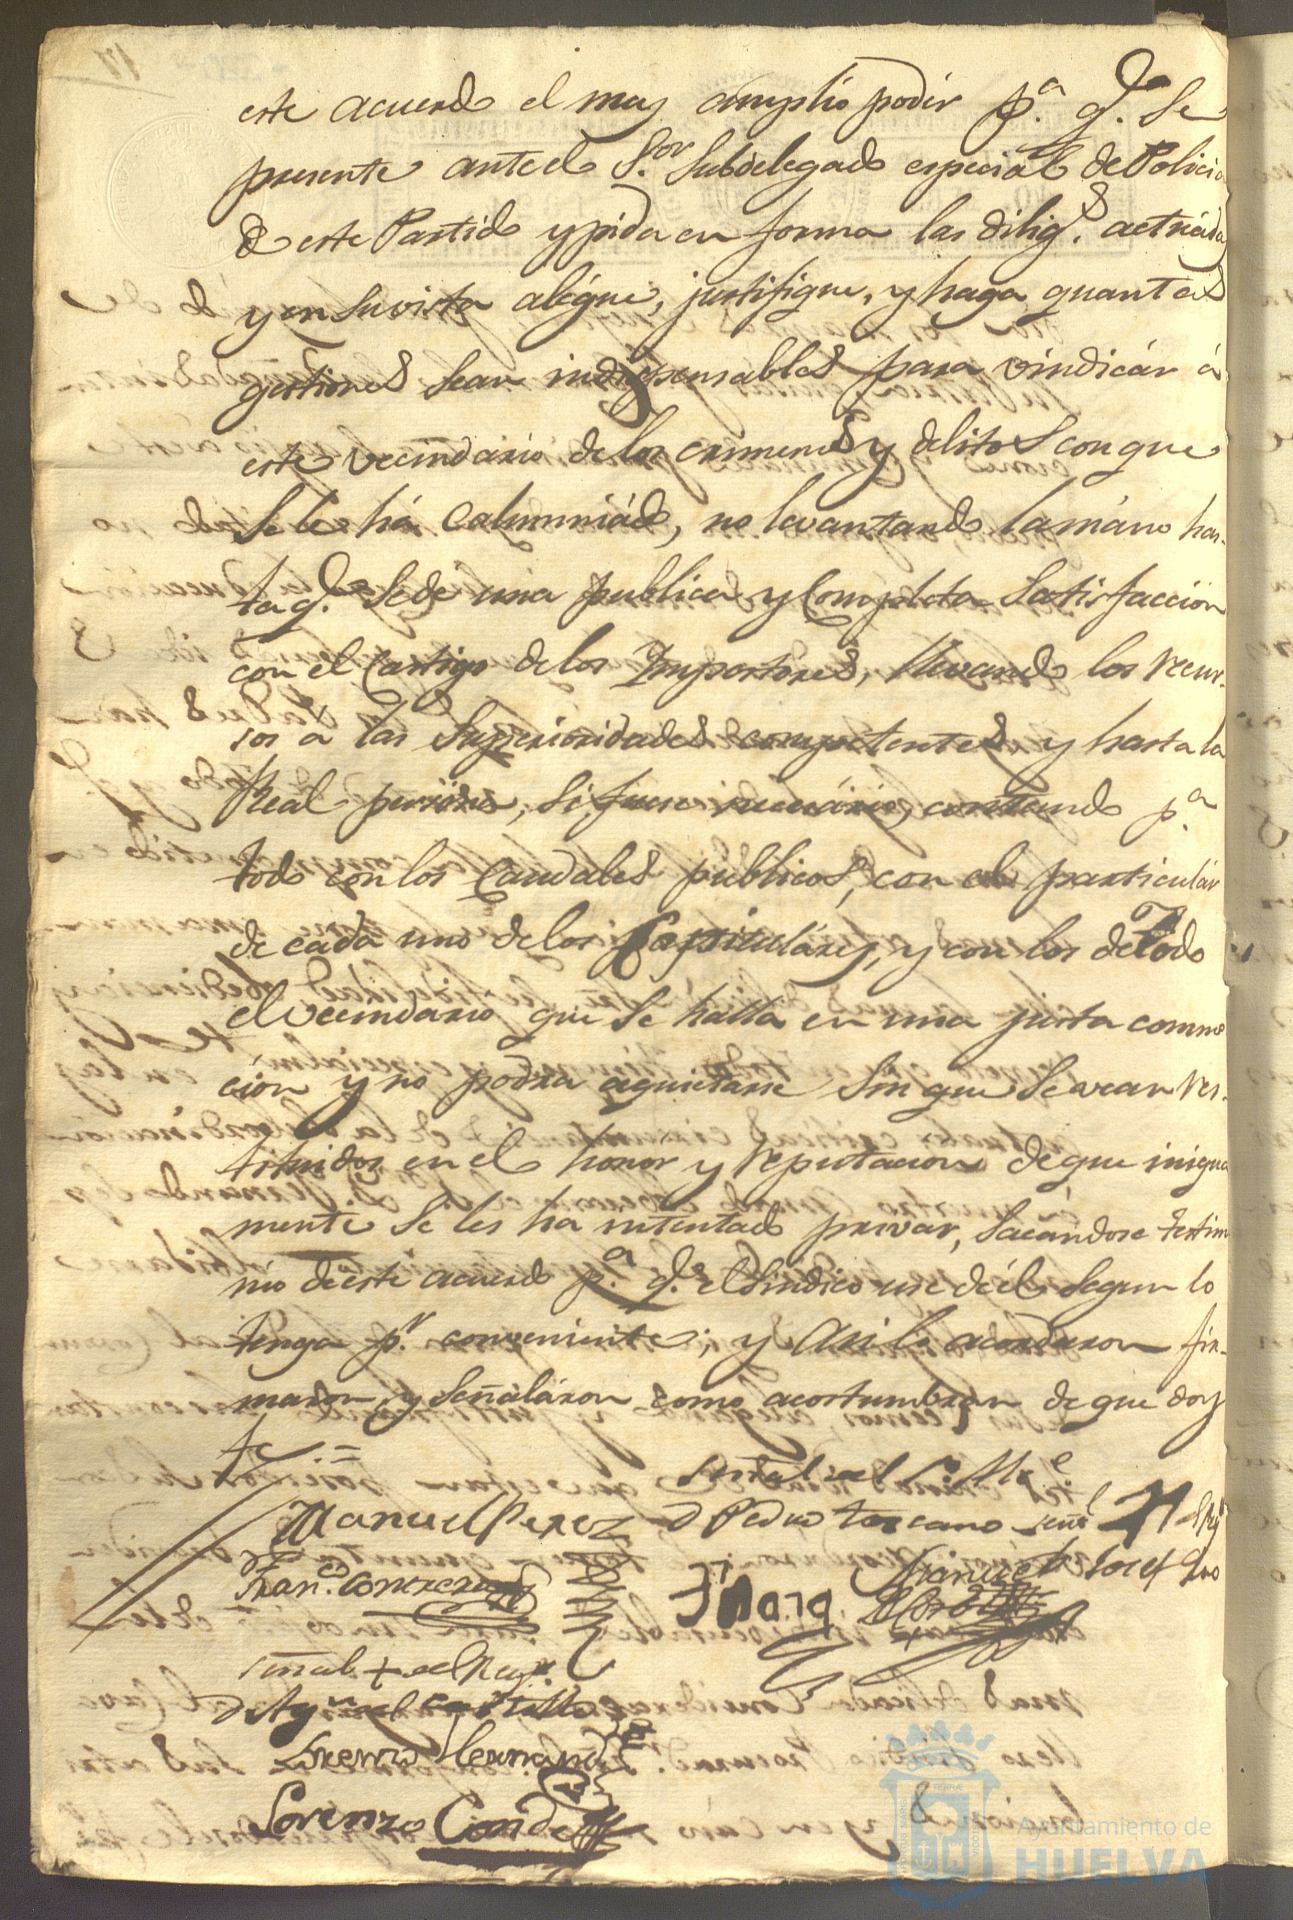 este acuerdo el muy amplio podér p.ª q.e se
presente ante el S.or Subdelegado especial de Policia
de este Partido y pida en forma las dilig.s actuádas
y en su vista alégue, justifique, y haga quantas
gestiones sean indispensables para vindicár á
este vecindario de los crimenes y delitos con que
se le há calumniádo, no levantando la máno has-
ta q.e se de una publica y completa satisfaccion
con el castigo de los Impostores, llevando los recur-
sos á las Superioridades competentes y hasta la
Real persona, si fuere necesário, contando p.ª
todo con los caudales publicos, con el particulár
de cada uno de los Capituláres, y con los de todo
el vecindario que se halla en una justa conmo
cion y no podrá aquietarse sin que se vean res-
tituidos en el honór y reputacion de que iniqua
mente se les ha intentado privar, sacándose testimo
nio de este acuerdo p.ª q.e el Sindico use de él segun lo
tenga p.r conveniente; y asi lo acordaron fir-
maron, y señaláron como acostumbran de que doy
fe =
señal del S.r Al.e
Manuel Perez D Pedro Toscano señl
Fran.co Contreras Manuel Josef
señal + del Reg.r
D Ag.n del Castillo
Lorenzo Hernand
Lorenzo Conde
8
Ayuntamiento de
HUELVA